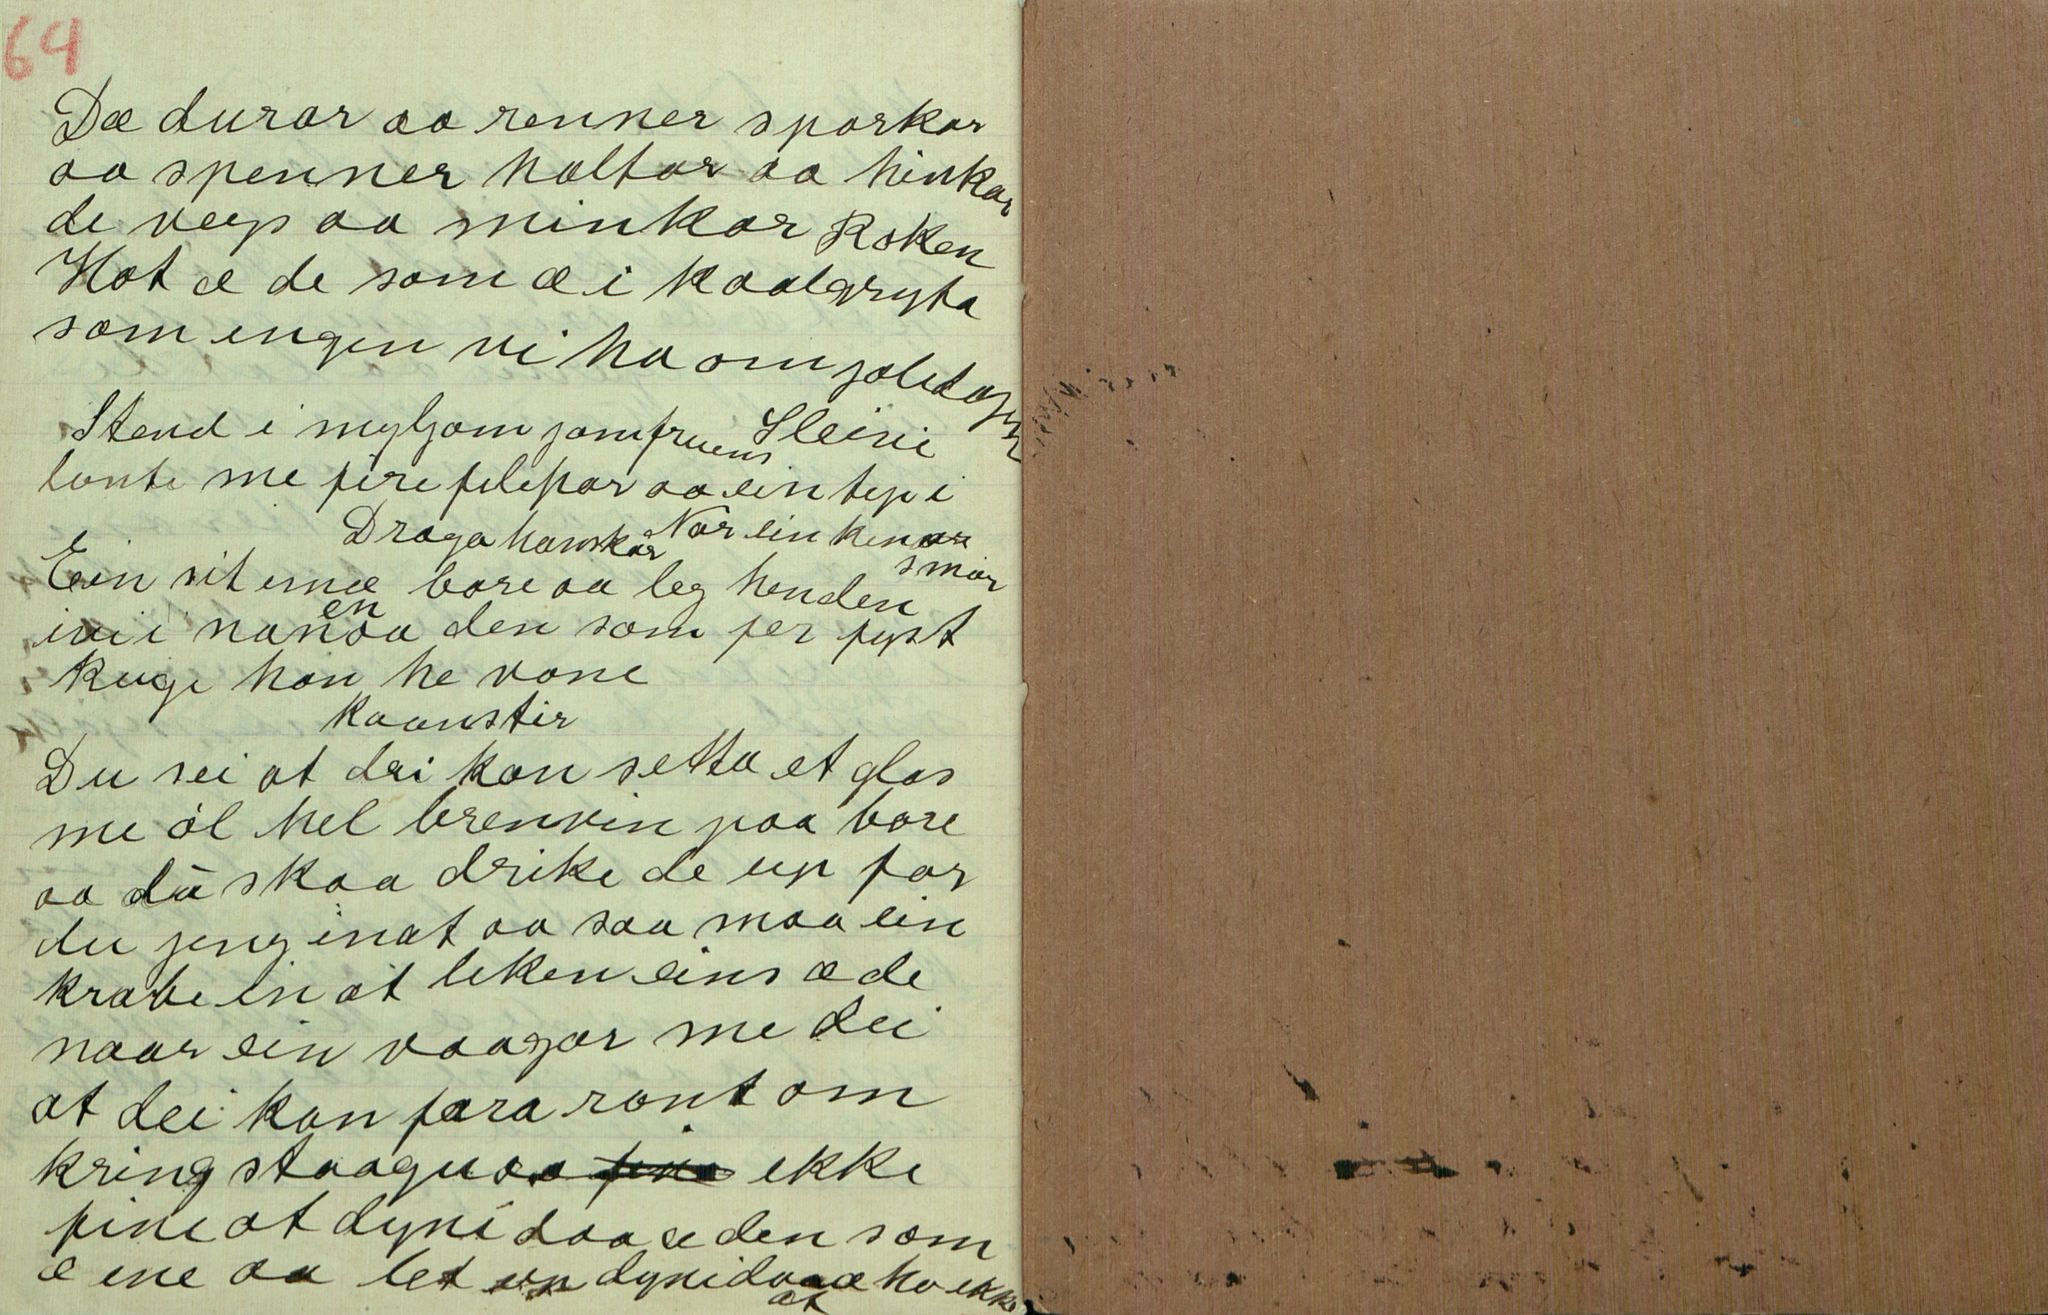 64
Dæ durar aa renner sparkar
aa spenner haltar aa hinkar
de veks aa minkar Rokken
Hot æ de som æ i kaalgryta
som engen vi ha om joledagen
Stend i myljom jomfruens Sleivi
lonte me fire filepar aa ein tep i
Draga hanskar Nor ein henar
smør
Ein sit inæ bore aa leg henden
en
ivi i nanoa den som fer fyst
kuge han he vone
kaanstir
Du sei at dei kan setta et glas
me øl hel brenvin paa bore
aa du skaa drike de up før
du jeng inat aa saa maa ein
krabe in at leken eins æ de
naar ein vaagar me dei
at dei kan fara ront om
kring staagu aa ekke
fine at dyni daa æ den som
æ ine aa let dyni daa æ ho ekke
at